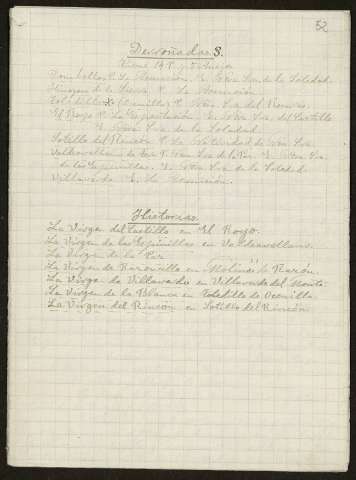 52
Derroñadas.
Tiene 14 P. y 5 Ermitas
Dombellas P. La Asunción. E. Ntra Sra de la Soledad.
Hinojosa de la Sierra P. La Asunción.
Toledillo (Ocenilla) P. Ntra Sra del
El Royo P. La E. Ntra Sra del Castillo
E. Ntra Sra de la Soledad
Sotillo del Rincón P. La Natividad de Ntra Sra.
Valdeavellano de Tera P. Ntra Sra de la Paz. E. Ntra Sra
de las Espinillas. E. Ntra Sra de la Soledad
Villaverde E. La Asunción.
Historias
La Virgen del Castillo en El Royo.
La Virgen de las Espinillas en Valdeavellano.
La Virgen de la Paz
La Virgen de en Molinos de Razón.
La Virgen de Villaverde en Villaverde del Monte.
La Virgen de la Blanca en Toledillo de Ocenilla.
La Virgen del Rincón en Sotillo del Rincón